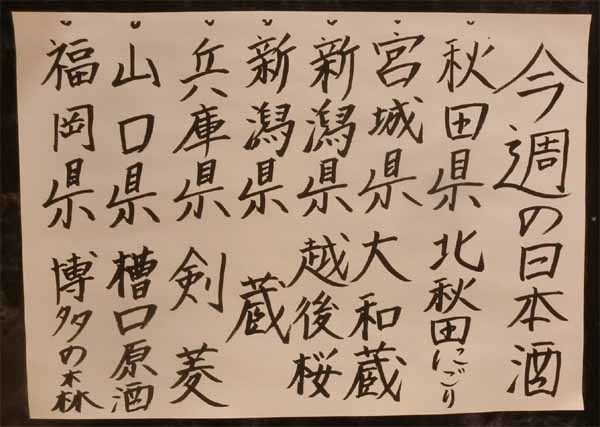 今週の日本酒
秋田県 北秋田にごり
宮城県 大和蔵
新潟県 越後桜
新潟県 蔵
兵庫県 剣菱
山口県 槽口原酒
福岡県 博多の森